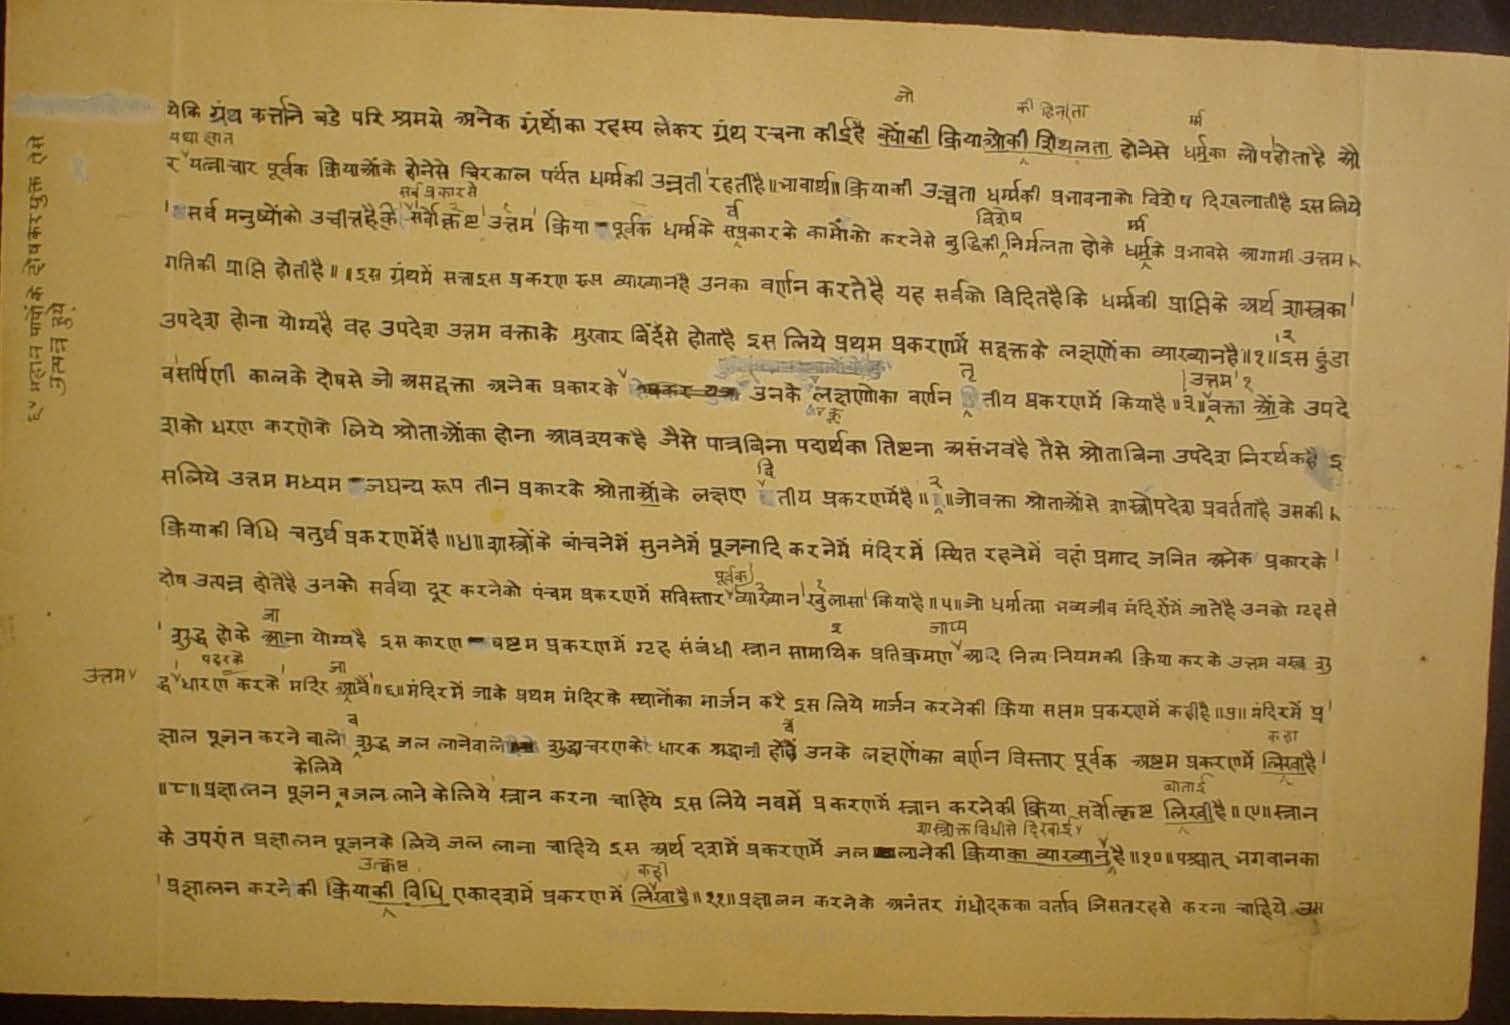 जो
की हिनाता
र्म्म
येकि ग्रंथ कर्त्ताने बडे परि श्रमसे अनेक ग्रंथोंका रहस्य लेकर ग्रंथ रचना कीईहै क्योंकी क्रियाओंकी शिथलता होनेसे धर्मका लोपहोताहै औ
यथा ज्ञात
र यत्नाचार पूर्वक क्रियाओंके होनेसे चिरकाल पर्यंत धर्म्मकी उन्नती रहतीहै॥भावार्थ॥क्रियाकी उच्चता धर्म्मकी प्रभावनाको विशेष दिखलातीहै इस लिये
सर्व प्रकारसे
सर्व मनुष्योंको उचीतहैके सर्वोत्कृष्ट उत्तम क्रिया पूर्वक धर्म्मके सप्रकारके कामोंको करनेसे बुद्धिकी निर्मलता होके धर्मके प्रभावसे आगामी उत्तम
र्व
विशेष
र्म्म
गतिकी प्राप्ति होतीहै॥ ॥इस ग्रंथमें सत्ताइस प्रकरण रूप व्याख्यानहै उनका वर्णन करतेहै यह सर्वको विदितहैकि धर्म्मकी प्राप्तिके अर्थ शास्त्रका
उपदेश होना योग्यहै वह उपदेश उत्तम वक्ताके मुखार बिंदसे होताहै इस लिये प्रथम प्रकरणमें सद्वक्तके लक्षणोंका व्याख्यानहै॥१॥इस हुंडा
वसर्पिणी कालके दोषसे जो असद्वक्ता अनेक प्रकारके उनके लक्षणोका वर्णन तीय प्रकरणमें कियाहै॥३॥वक्ता ओंके उपदे
तृ
उत्तम १
२
शको धरण करणेके लिये श्रोताओंका होना आवश्यकहै जैसे पात्रबिना पदार्थका तिष्टना असंभवहै तैसे श्रोताबिना उपदेश निरर्थकहै इ
सलिये उत्तम मध्यम जघन्य रूप तीन प्रकारके श्रोताओंके लक्षण तीय प्रकरणमेंहै॥ ॥जोवक्ता श्रोताओंसे शास्त्रोपदेश प्रवर्तताहै उसकी
द्वि
२
क्रियाकी विधि चतुर्थ प्रकरणमेंहै॥४॥शास्त्रोंके बांचनेमें सुननेमें पूजनादि करनेमें मंदिरमें स्थित रहनेमें वहां प्रमाद जनित अनेक प्रकारके
दोष उत्पन्न होतेहै उनको सर्वथा दूर करनेको पंचम प्रकरणमें सविस्तार व्याख्यान खुलासा कियाहै॥५॥जो धर्मात्मा भव्यजीव मंदिरोंमें जातेहै उनको गृहसे
पूर्वक
जा
शुद्ध होके आना योग्यहै इस कारण षष्टम प्रकरणमें गृह संबंधी स्नान सामायिक प्रतिक्रमण आदि नित्य नियमकी क्रिया करके उत्तम वस्त्र शु
जाप्य
पहरके
जा
द्ध धारण करके मंदिर आवै॥६॥मंदिरमें जाके प्रथम मंदिरके स्थानोंका मार्जन करै इस लिये मार्जन करनेकी क्रिया सप्तम प्रकरणमें कहीहै॥७॥मंदिरमें प्र
उत्तम
क्षाल पूजन करने वाले शुद्ध जल लानेवाले शुद्धाचरणके धारक श्रद्धानी होवें उनके लक्षणोंका वर्णन विस्तार पूर्वक अष्टम प्रकरणमें लिखाहै
व
कहा
केलिये
॥८॥प्रक्षालन पूजन व जल लाने केलिये स्नान करना चाहिये इस लिये नवमें प्रकरणमें स्नान करनेकी क्रिया सर्वोत्कृष्ट लिखीहै॥९॥स्नान
बाताई
शास्त्रोक्त विधीसे दिखाई
के उपरांत प्रक्षालन पूजनके लिये जल लाना चाहिये इस अर्थ दशमें प्रकरणमें जल लानेकी क्रियाका व्याख्यानहै॥१०॥पश्चात् भगवानका
उत्कृष्ट
कही
प्रक्षालन करनेकी क्रियाकी विधि एकादशमें प्रकरणमें लिखाहै॥११॥प्रक्षालन करनेके अनंतर गंधोदकका वर्ताव जिसतरहसे करना चाहिये उस
महान पापोंके दोषकरयुक्त ऐसे
उत्पन्न हुये